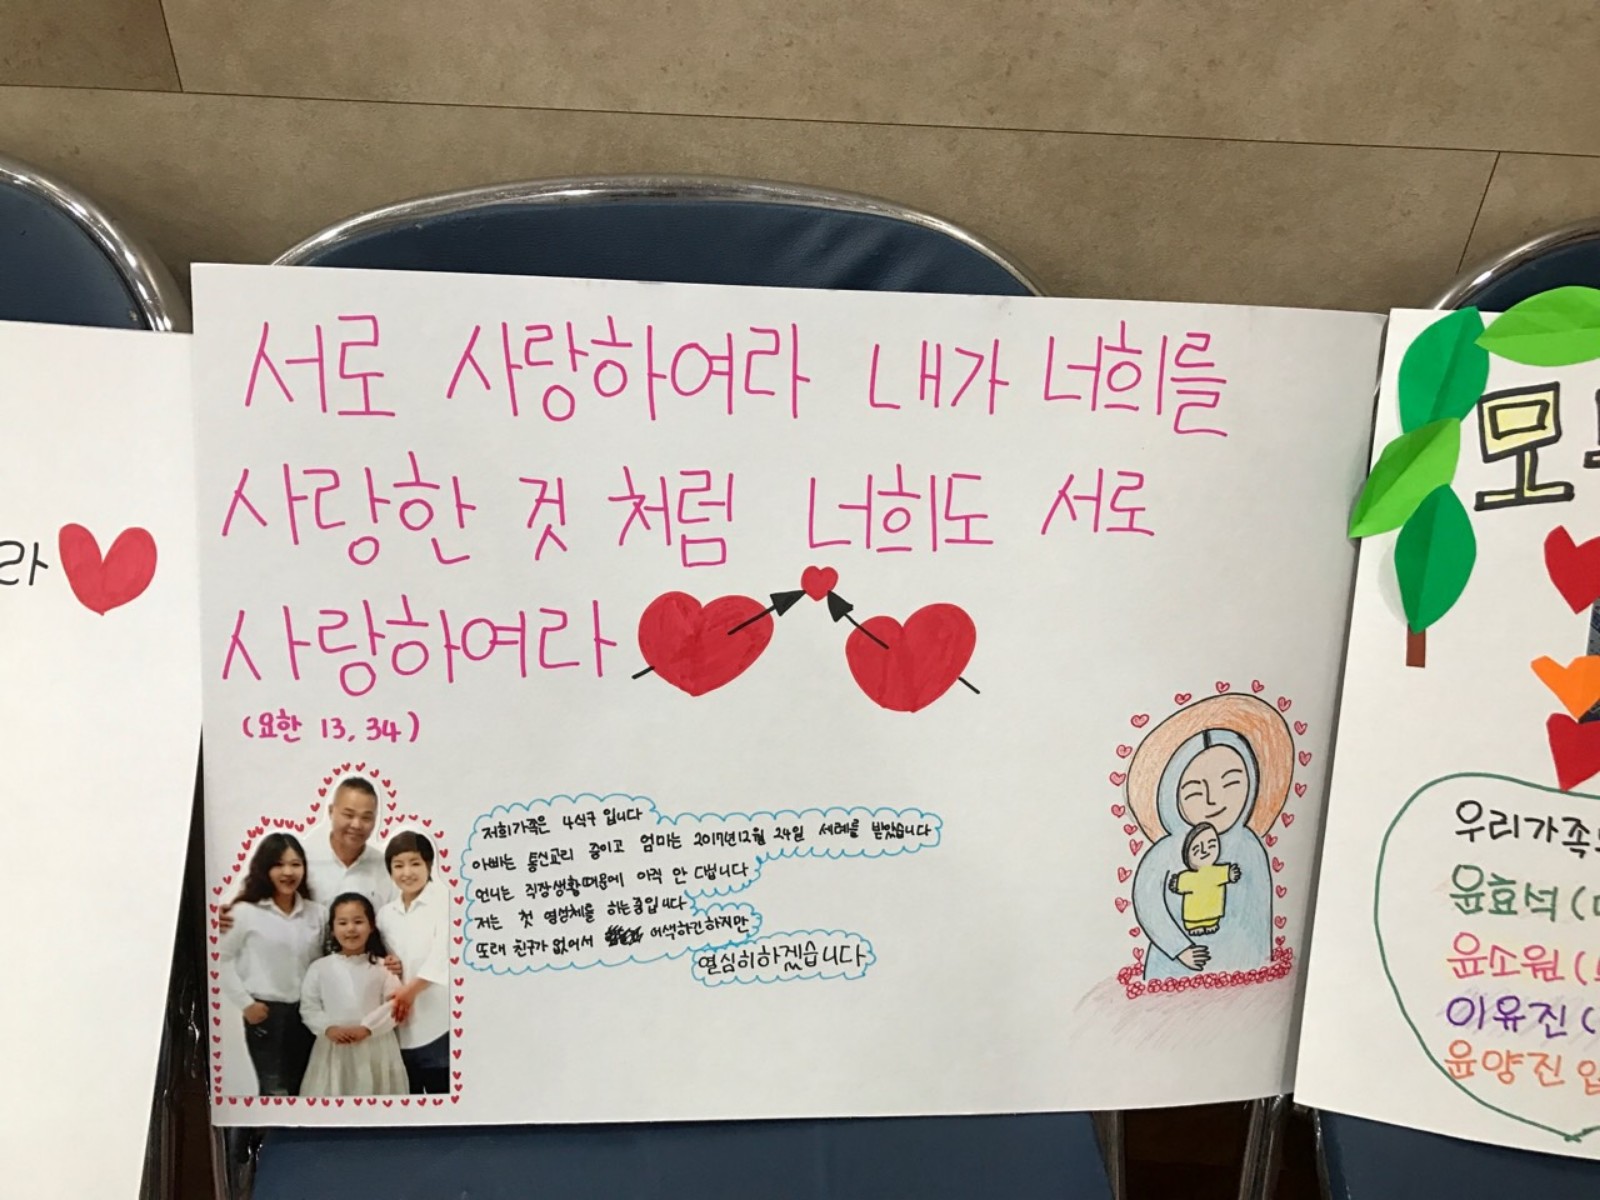 서로 사랑하여라 내가 너희를
사랑한 것 처럼 너희도 서로
사랑하여라
(요한 13, 34)
저희가족은 4식구 입니다
아빠는 통신교리 중이고 엄마는 2017년12월 24일 세례를 받았습니다
언니는 직장생활때문에 아직 안 다닙니다
저는 첫 영성체를 하는중입니다
또래 친구가 없어서 어색하긴하지만
열심히하겠습니다
라
모
우리가족
윤효석
윤소원
이유진
윤양진